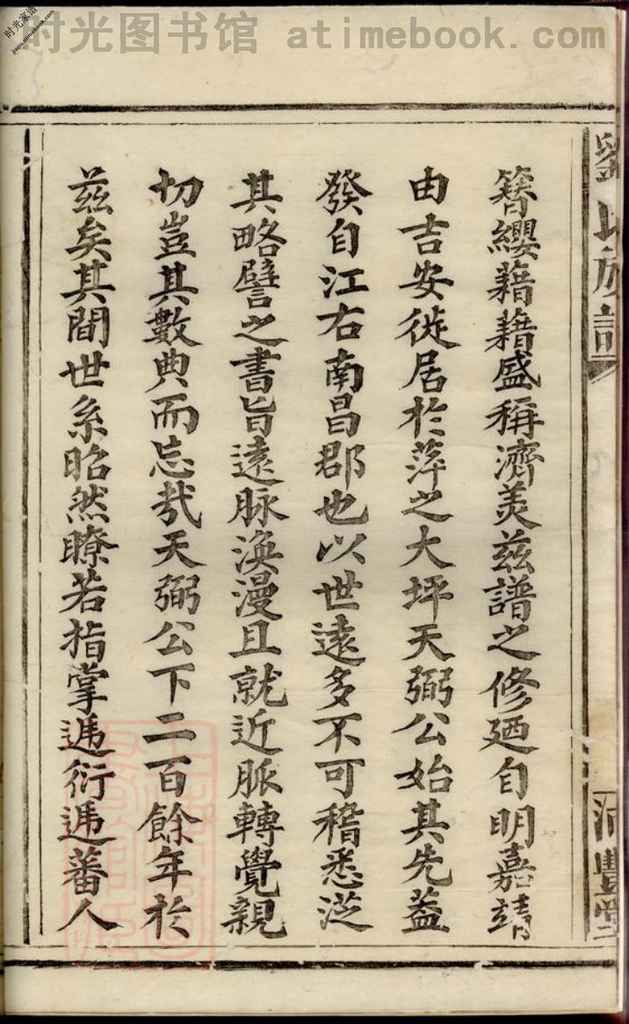 时光图书馆 atimebook.com
时光家谱
劉氏族譜
沛豐堂
簪纓藉藉盛稱濟美茲譜之修廼自明嘉靖
由吉安徙居於萍之大坪天弼公始其先葢
發自江右南昌郡也以世遠多不可稽悉泛
其略譬之書旨遠脉渙漫且就近脈轉覺親
切豈其數典而忘㦲天弼公下二百餘年於
茲矣其間世系昭然瞭若指掌遞衍遞蕃人